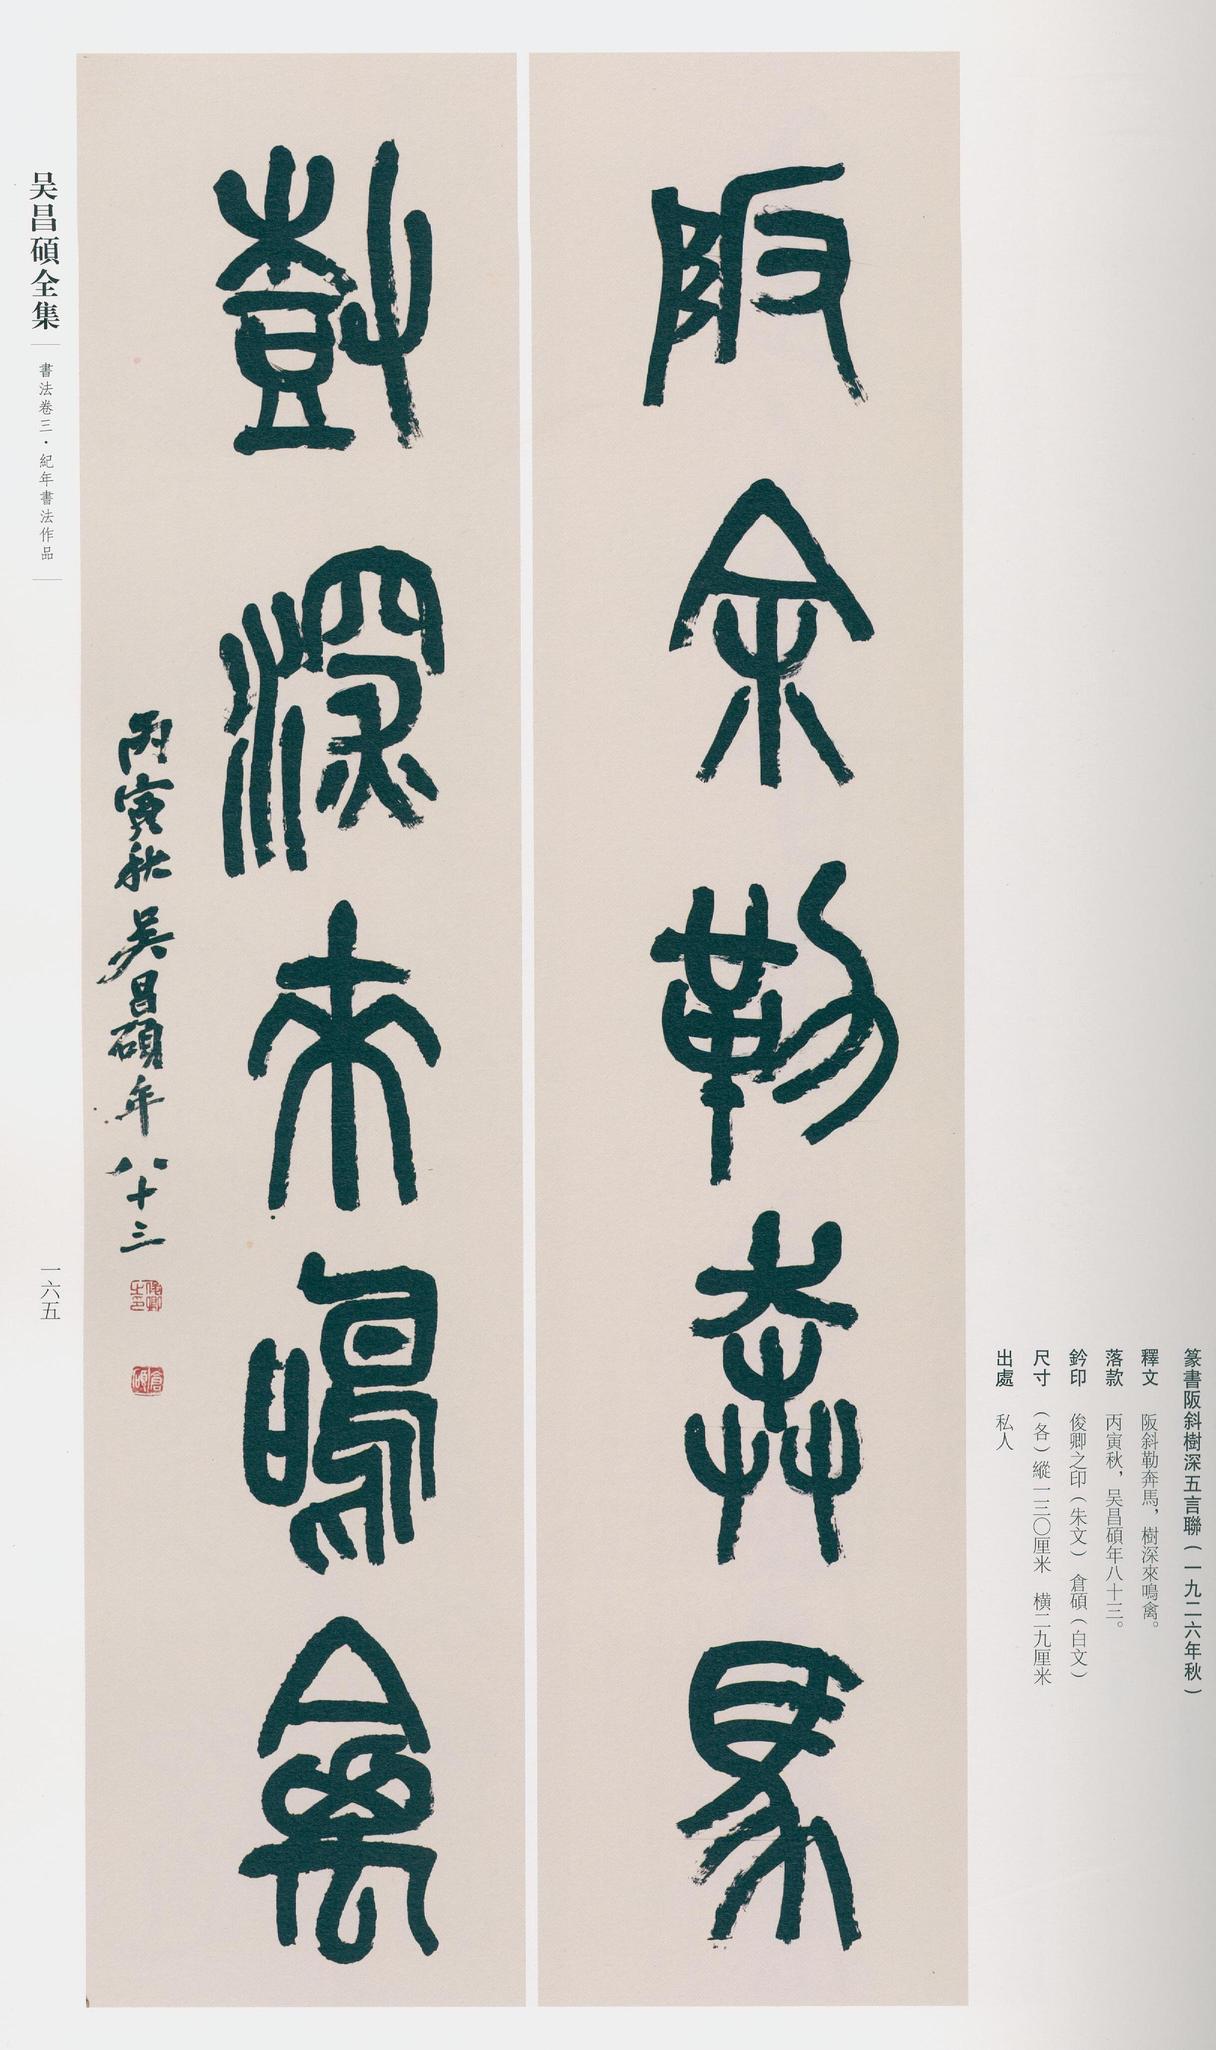 篆書阪斜樹深五言聯（一九二六年秋）
釋文　阪斜勒奔馬，樹深來鳴禽。
落款　丙寅秋，吴昌碩年八十三。
鈐印　俊卿之印（朱文）　倉碩（白文）
尺寸　（各）縱一三〇厘米　橫二九厘米
出處　私人
阪余勒奔馬
樹深來鳴禽
丙寅秋吴昌碩年八十三
俊卿之印
倉碩
吴昌碩全集
書法卷三・紀年書法作品
一六五